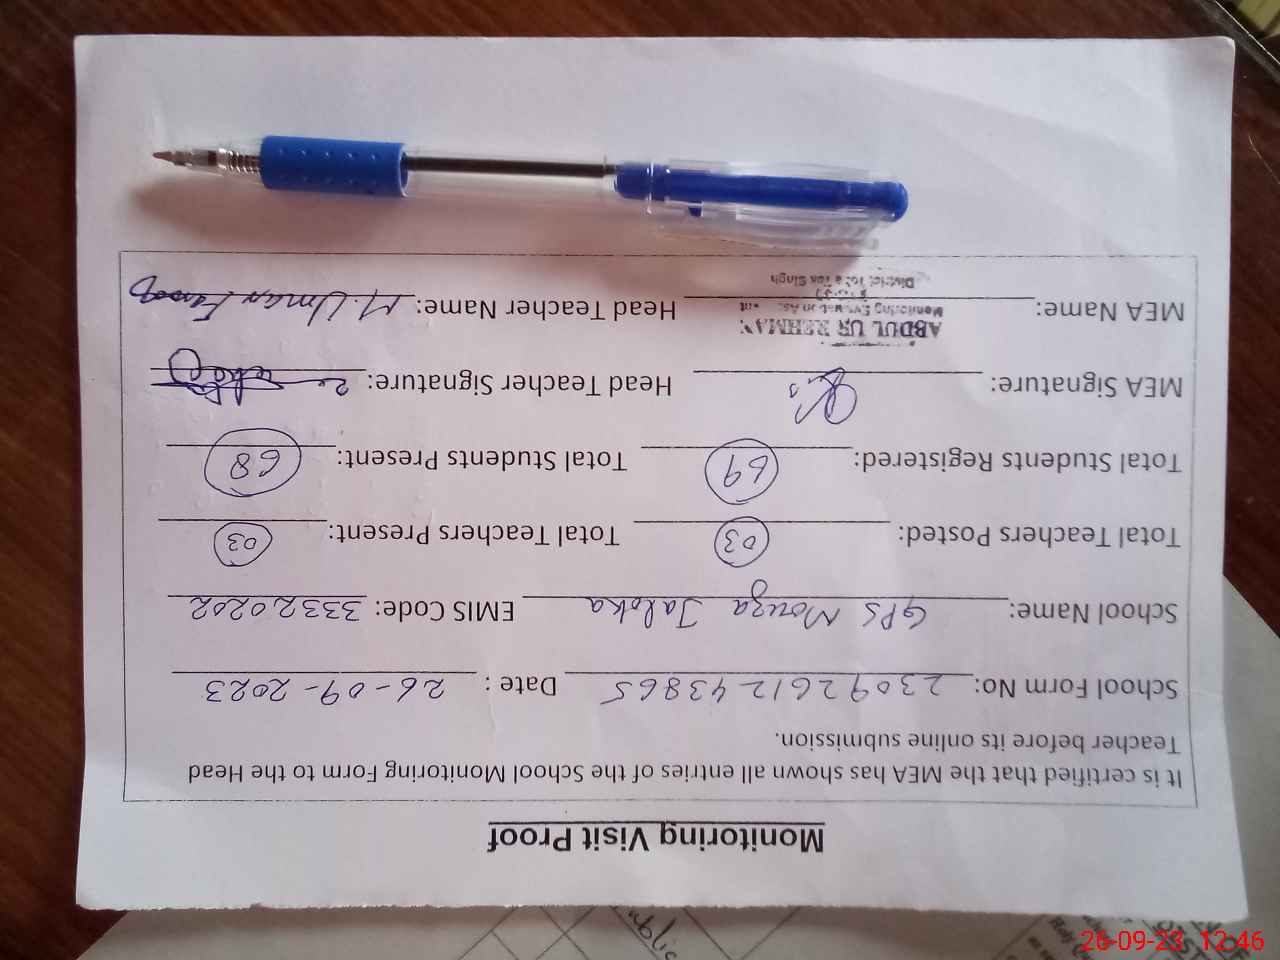 Monitoring Visit Proof
It is certified that the MEA has shown all entries of the School Monitoring Form to the Head
Teacher before its online submission.
School Form No: 23092612 43865 Date : 26-09-2023
School Name: GPS Mouza Jaloka EMIS Code: 33320202
Total Teachers Posted: 03 Total Teachers Present: 03
Total Students Registered: 69 Total Students Present: 68
MEA Signature: Head Teacher Signature:
ABDUL UR REHMAN
Monitoring
MEA Name: Head Teacher Name: M. Umar Farooq
District Toba Tek Singh
26-09-23 12:46